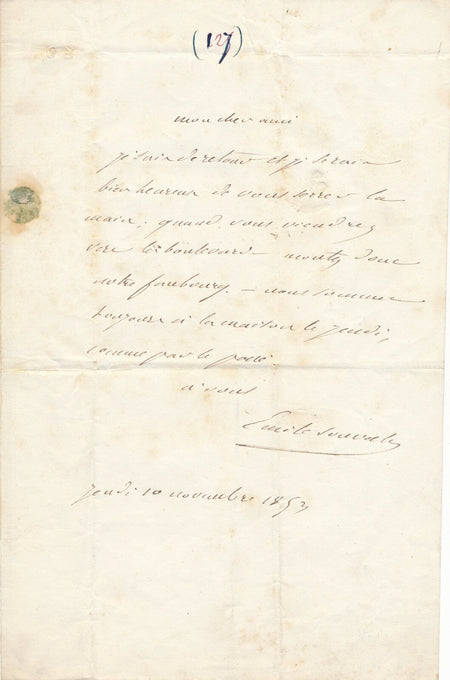 (127)
mon cher ami
je suis de retour et je serais
bien heureux de vous serrer la
main; quand vous viendrez
vers les boulevards montez donc
notre faubourg. – nous sommes
toujours à la maison le jeudi,
comme par le passé.
à vous
Emile Souvestre
jeudi 10 novembre 1853